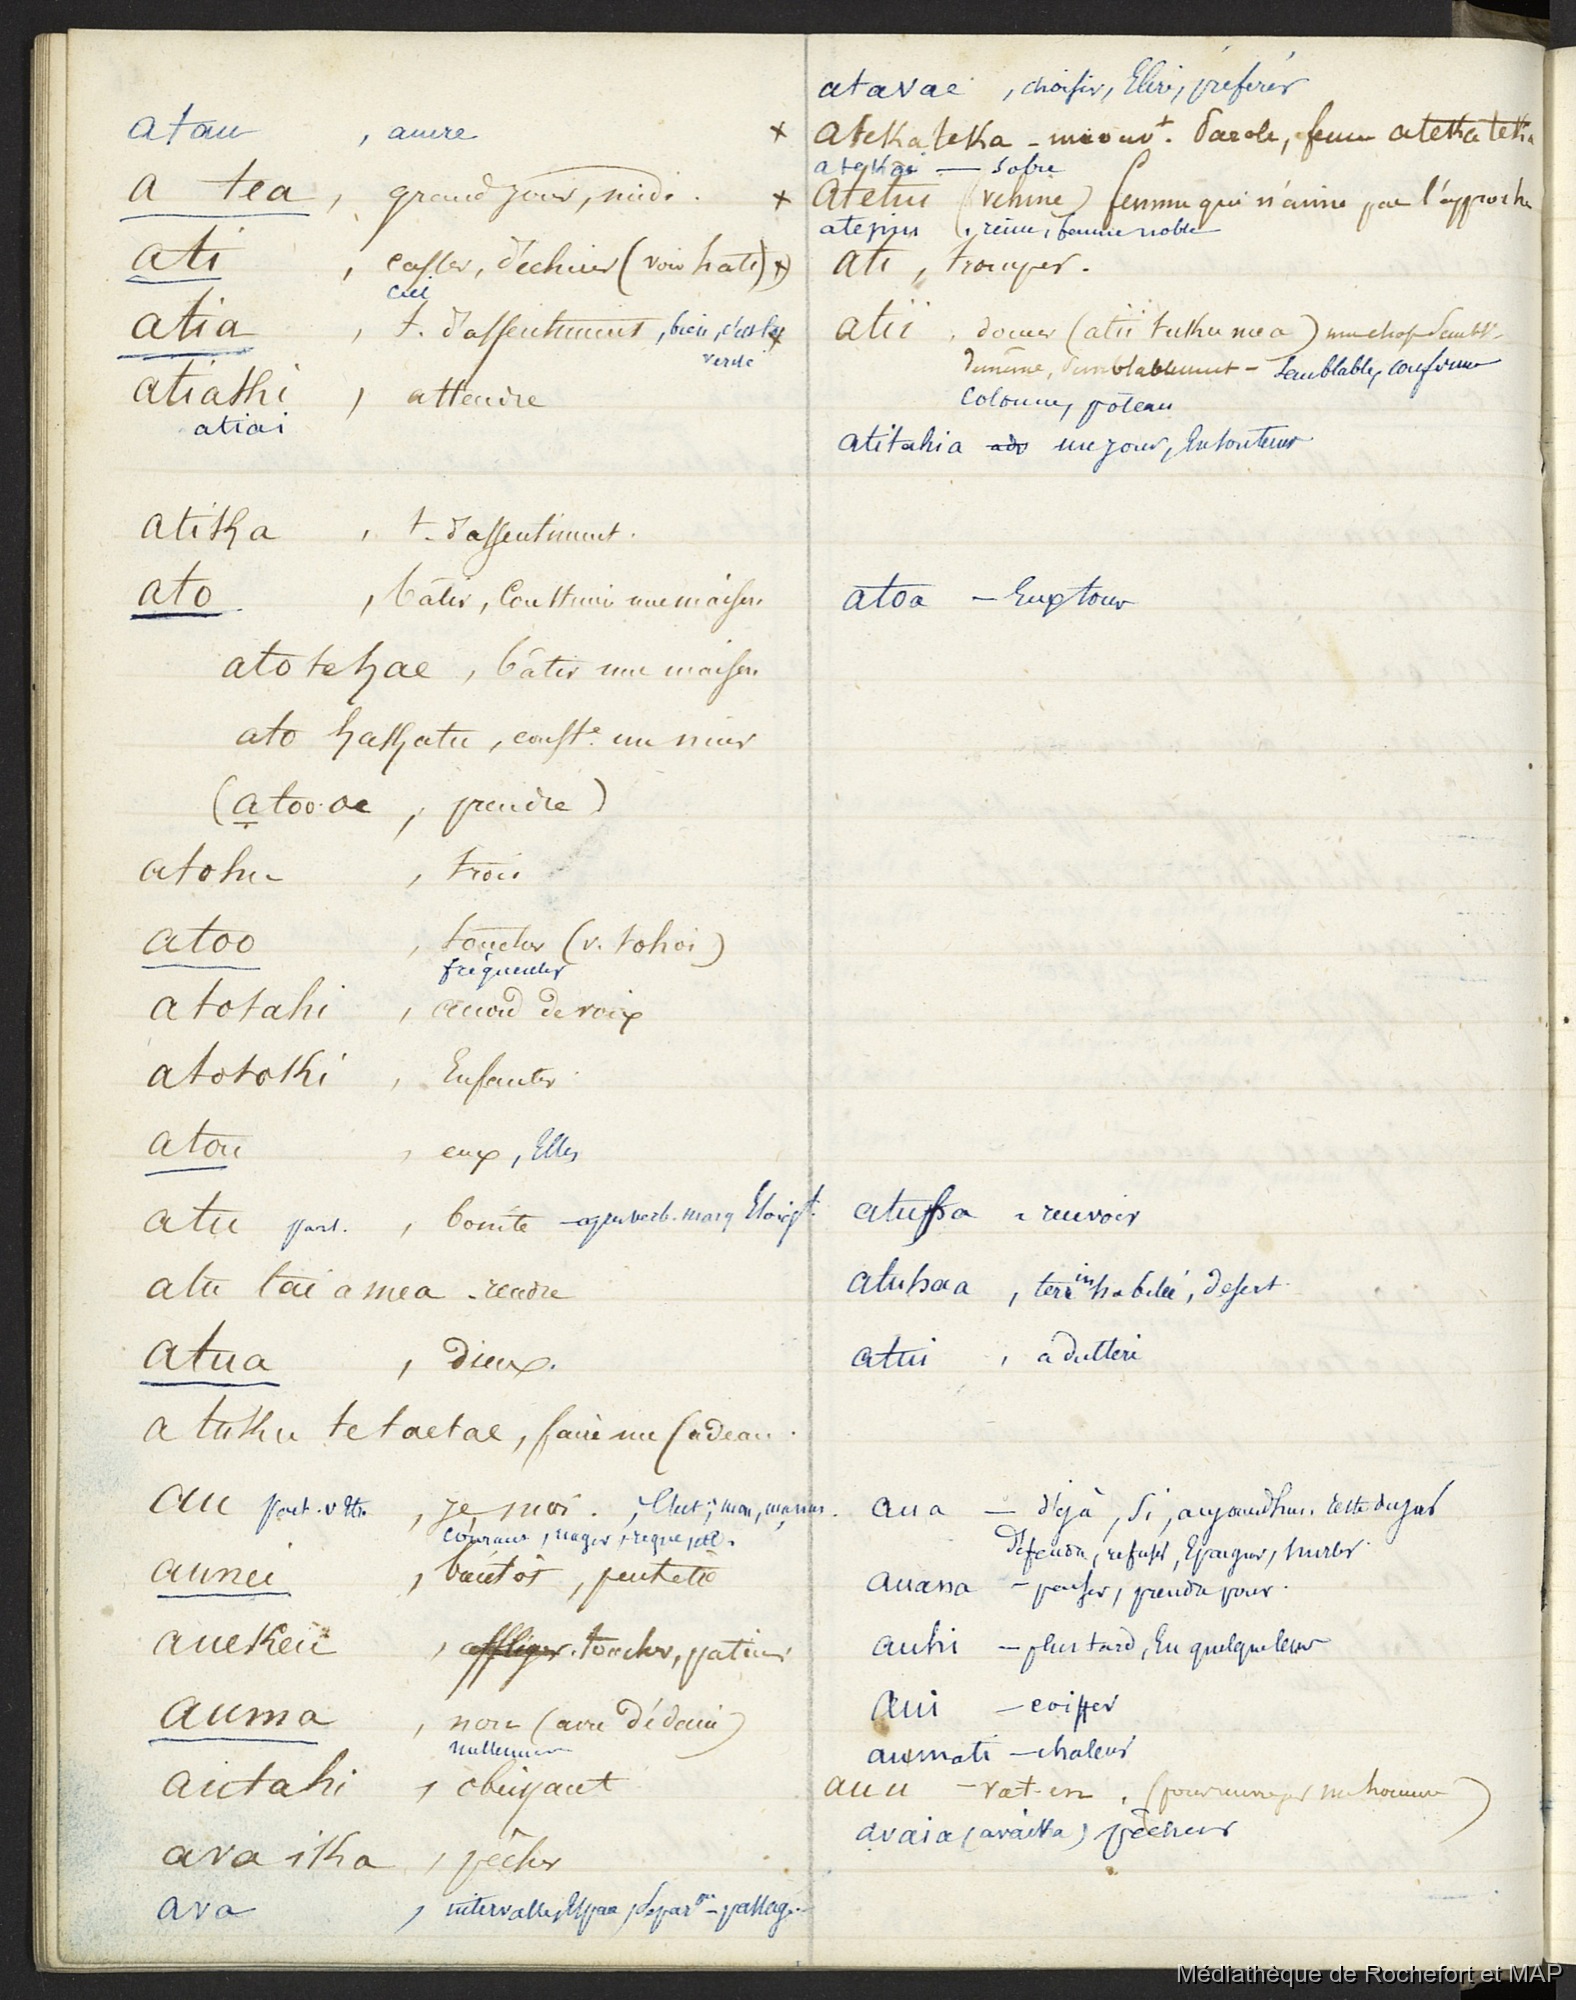 atau , ancre
a tea , grand jour, midi.
ati , casser, déchirer (voir hati)
ciel
atia , t. d'assentiment, bien, c'est
verité
atiathi , attendre
atiai
atika , t. d'assentiment.
ato , bâtir, construire une maison
ato te hae , bâtir une maison
ato hakatu , const.e un mur
(atoo oe , prendre)
atohu , trois
atoo , toucher (v. tohoi)
fréquenter
atotahi , accord de voix
atotoki , Enfanter
atou , eux, Elles
atu part. , bonite - apres verb. marq Eloigt.
atu tai a mea - rendre
atua , dieux.
a tuku te taetae, faire un cadeau.
au , je, moi. , Chut; mon, ma
courant, nager
aunei , bientôt, peutetre
auekeie , affliger. toucher, patir
auma , non (avec dédain)
nullement
autahi , obeissant
ava ika , pêcher
ava , intervalle, Espace, separon - passage
atavae , choisir, Elire, préférer
× atekateka - mauvt. parole, femme atekateka
atekai — sobre
× atetiu (vehine) femme qui n'aime pas l'approche
atepiu , reine, femme noble
ati , tromper.
atii , donner (atii tuku mea) une chose sembl.
de même, semblablement - semblable, conforme
colonne, poteau
atitahia ado un jour, En son tems
atoa - Eux tous
atuha - revoir
atuhaa , terre inhabitée, desert.
atui , adultere
aua — déjà, si, aujourdhui reste du jour
Défendre, refuser, Epargner, hurler.
auana - penser, prendre pour.
auhi — plus tard, En quelque lieu
aui — coiffer
aumati — chaleur
auu - vat-en , (pour un homme)
avaia (avaika) pêcheur
Médiathèque de Rochefort et MAP